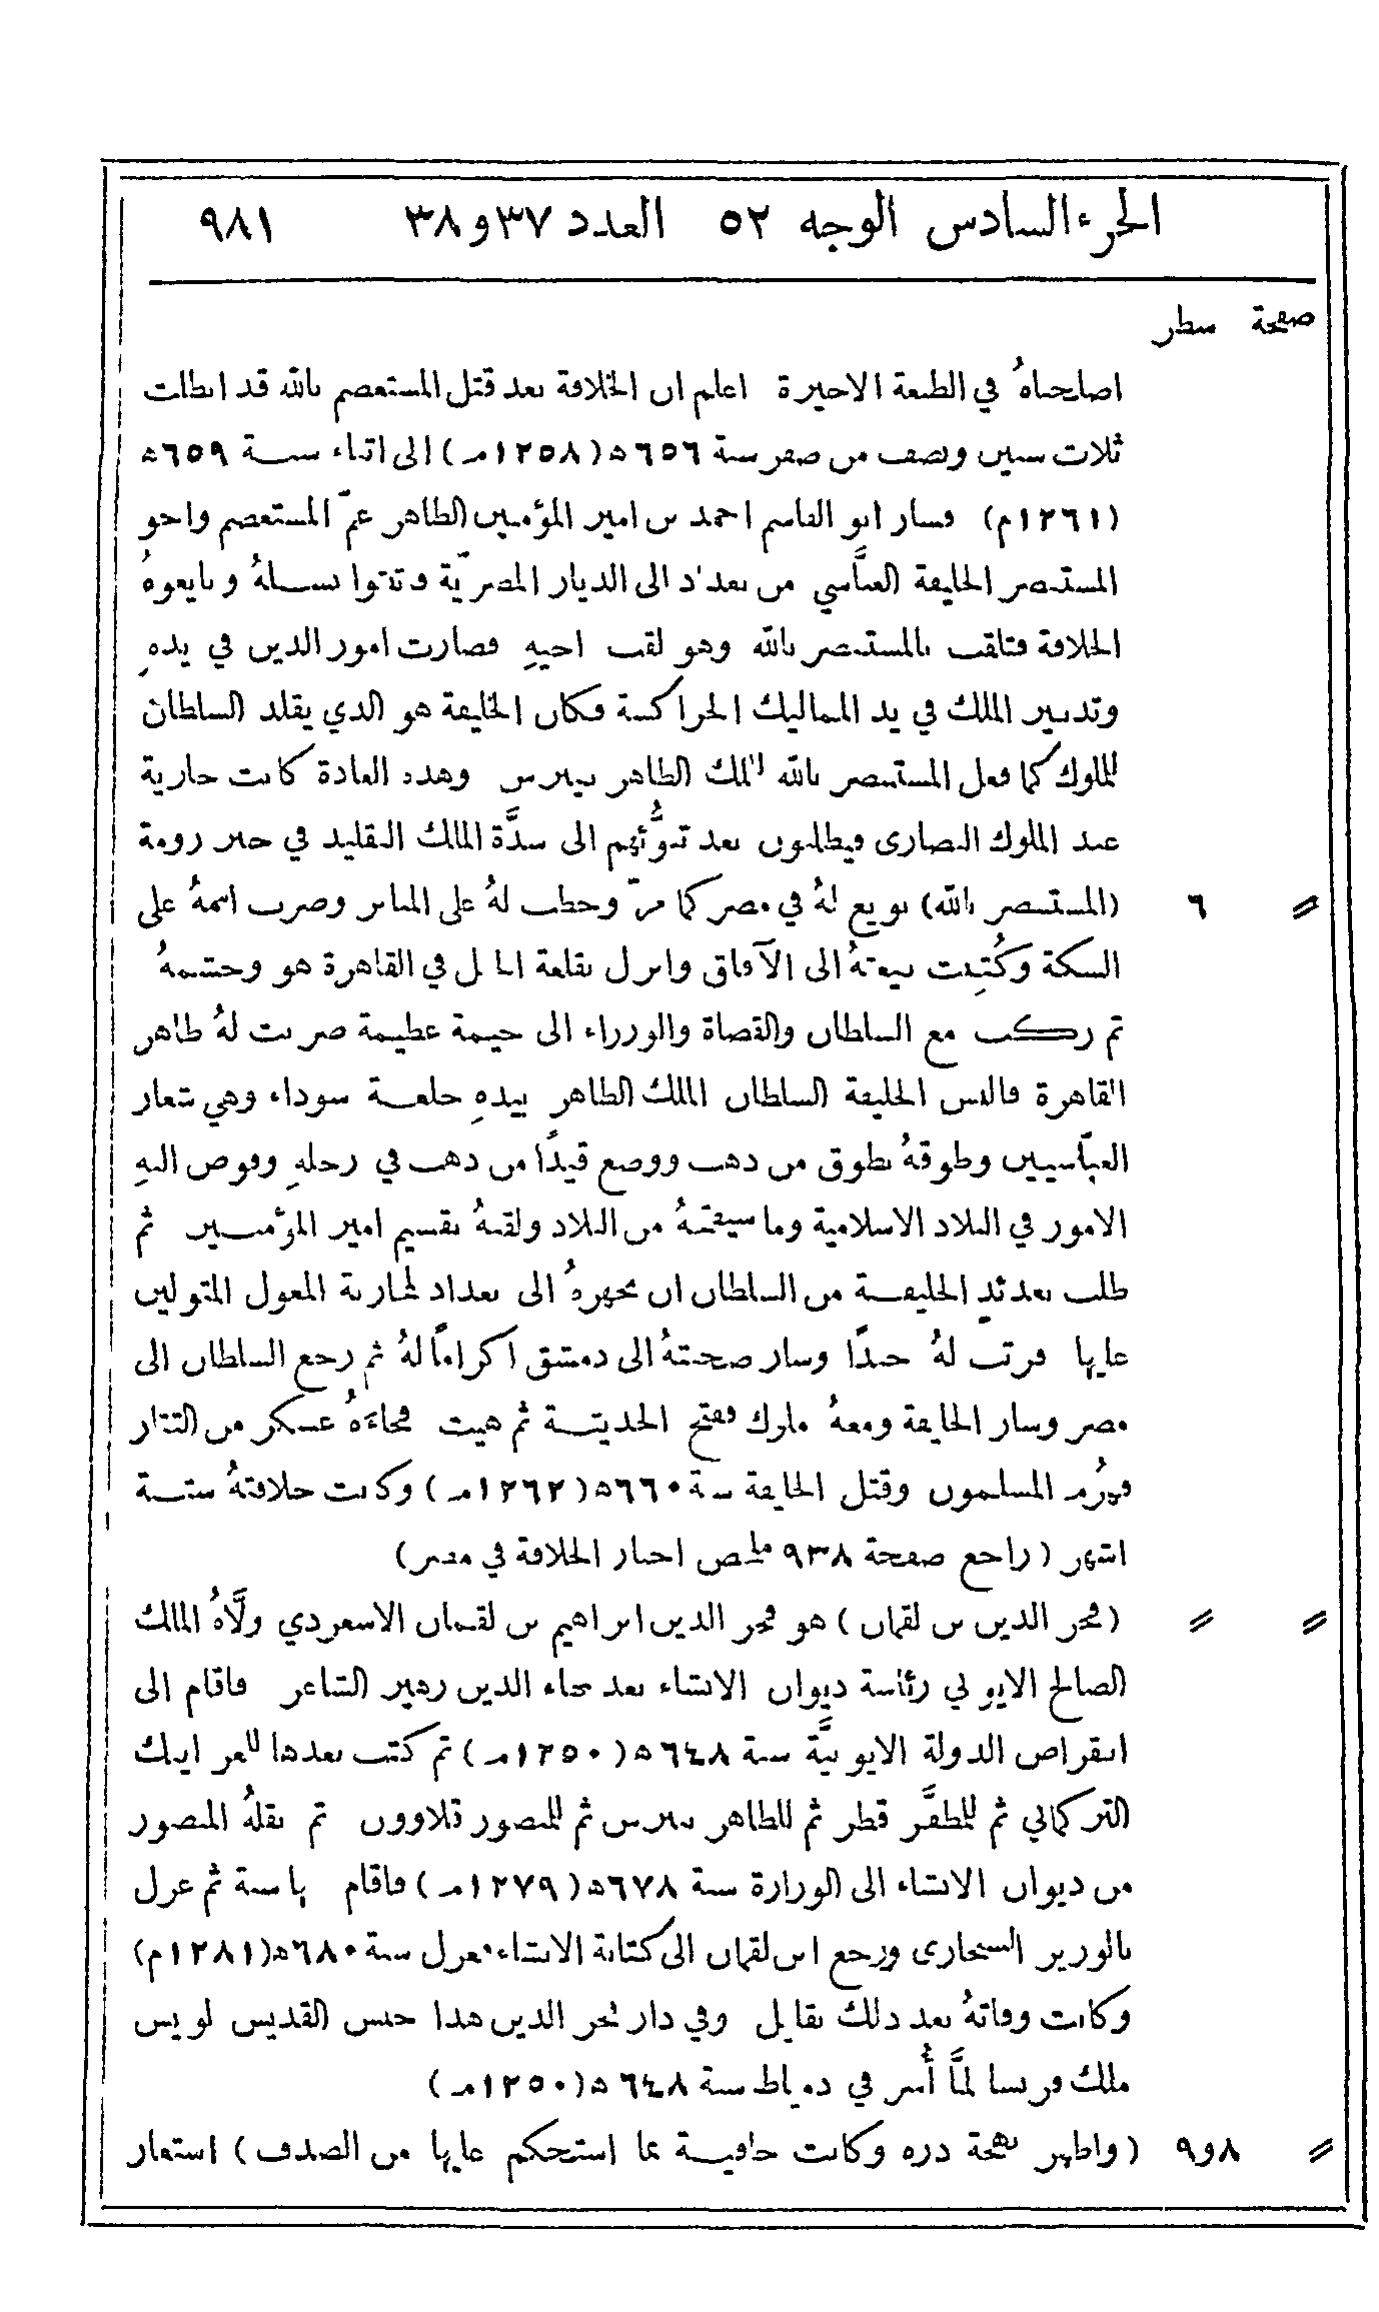 الجزء السادس الوجه ٥٢ العدد ٣٧ و٣٨ ٩٨١
صفحة سطر
اصلحناهُ في الطبعة الاخيرة اعلم ان الخلافة بعد قتل المستعصم بالله قد ابطلت
ثلاث سنين ونصف من صفر سنة ٦٥٦ھ (١٢٥٨م) الى اثناء سنة ٦٥٩ھ
(١٢٦١م) فسار ابو القاسم احمد بن امير المؤمنين الظاهر عمّ المستعصم واخو
المستنصر الخليفة العبَّاسي من بغداد الى الديار المصريّة وثبتوا نسبهُ وبايعوهُ
الخلافة فتلقب بالمستنصر بالله وهو لقب اخيهِ فصارت امور الدين في يدهِ
وتدبير الملك في يد المماليك الجراكسة فكان الخليفة هو الذي يقلد السلطان
الملوك كما فعل المستنصر بالله بالملك الظاهر بيبرس وهذه العادة كانت جارية
عند الملوك النصارى فيطلبون بعد تبوُّئهم الى سدَّة الملك التقليد في حبر رومة
〃 ٦ (المستنصر بالله) بويع لهُ في مصر كما مرّ وخطب لهُ على المنابر وضرب اسمهُ على
السكة وكُتِبت بيعتهُ الى الآفاق وانزل بقلعة الجبل في القاهرة هو وحشمهُ
ثم ركب مع السلطان والقضاة والوزراء الى خيمة عظيمة ضربت لهُ ظاهر
القاهرة فالبس الخليفة السلطان الملك الظاهر بيدهِ خلعة سوداء وهي شعار
العبّاسيين وطوقهُ بطوق من ذهب ووضع قيدًا من ذهب في رجلهِ وفوض اليهِ
الامور في البلاد الاسلامية وما سيفتحهُ من البلاد ولقبهُ بقسيم امير المؤمنين ثم
طلب بعدئذٍ الخليفة من السلطان ان يجهزهُ الى بغداد لمحاربة المغول المتولين
عليها فرتب لهُ جندًا وسار صحبتهُ الى دمشق اكرامًا لهُ ثم رجع السلطان الى
مصر وسار الخليفة ومعهُ ملوك ففتح الحديثة ثم هيت فجاءَهُ عسكر من التتار
فهُزم المسلمون وقتل الخليفة سنة ٦٦٠ھ (١٢٦٢م) وكانت خلافتهُ ستة
اشهر (راجع صفحة ٩٣٨ ملخص اخبار الخلافة في مصر)
〃 〃 (فخر الدين بن لقمان) هو فخر الدين ابراهيم بن لقمان الاسعردي ولَّاهُ الملك
الصالح الايوبي رئاسة ديوان الانشاء بعد بهاء الدين زهير الشاعر فاقام الى
انقراض الدولة الايوبيَّة سنة ٦٤٨ھ (١٢٥٠م) ثم كتب بعدها للمعز ايبك
التركماني ثم للمظفَّر قطز ثم للظاهر بيبرس ثم للمنصور قلاوون ثم نقلهُ المنصور
من ديوان الانشاء الى الوزارة سنة ٦٧٨ھ (١٢٧٩م) فاقام بها سنة ثم عزل
بالوزير السنجاري ورجع ابن لقمان الى كتابة الانشاء فعزل سنة ٦٨٠ھ (١٢٨١م)
وكانت وفاتهُ بعد ذلك بقليل وفي دار فخر الدين هذا حبس القديس لويس
ملك فرنسا لمَّا أُسر في دمياط سنة ٦٤٨ھ (١٢٥٠م)
〃 ٨و٩ (واظهر بهجة دره وكانت خافية بما استحكم عليها من الصدف) استعار